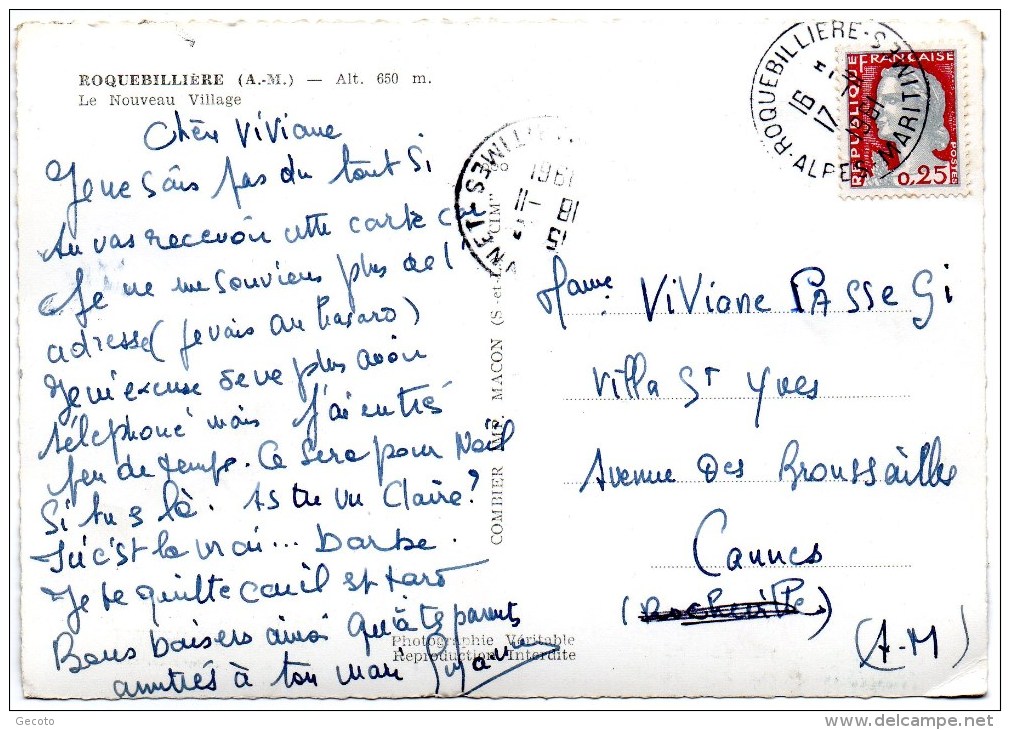 ROQUEBILLIÈRE (A.-M.) — Alt. 650 m.
Le Nouveau Village
Chère Viviane
Je ne sais pas du tout si
tu vas recevoir cette carte car
Je ne me souviens plus de l'
adresse (je vais au hasard)
Je m'excuse de ne plus avoir
téléphoné mais j'ai entré
peu de temps. Ce sera pour Noël
si tu es là. As tu vu Claire?
Ici c'st la vrai... barbe.
Je te quitte car il est tard
Bons baisers ainsi qu'à tes parents
amitiés à ton mari
Photographie Véritable
Reproduction Interdite
COMBIER IMP. MACON (S-et-L) "CIM"
1961
18-11
15
ROQUEBILLIERE
ALPES-MARITIMES
16 H
17-11
1961
REPUBLIQUE FRANÇAISE
POSTES
0,25
Mame Viviane PASSeGi
Villa St Yves
Avenue Des Broussailles
Cannes
(A-M)
Gecoto
www.delcampe.net